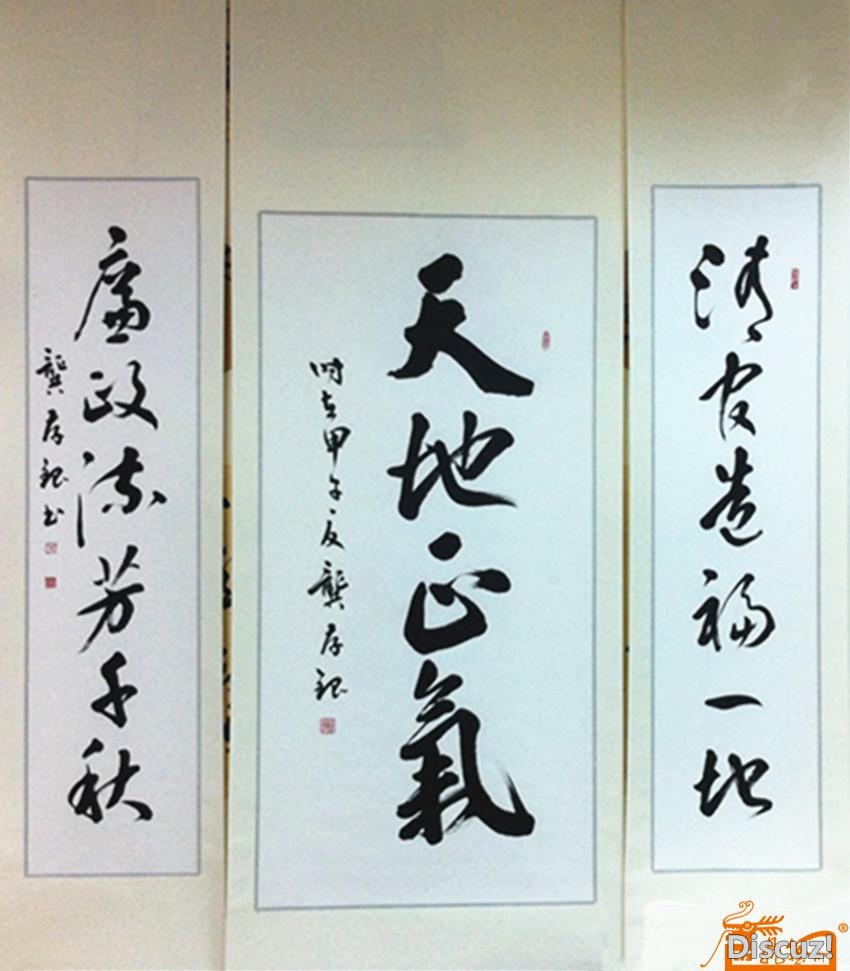 清官造福一地
天地正氣
時在甲午夏龔存
廉政流芳千秋
龔存 书
Discuz!